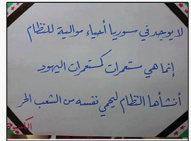 لا يوجد في سوريا أحياء موالية للنظام
إنما هي مستعمرات كمستعمرات اليهود
أنشأها النظام ليحمي نفسه من الشعب الحر